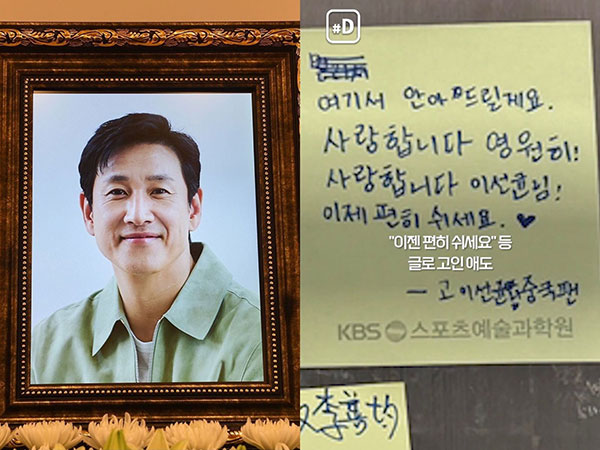 #D
여기서 안아드릴게요.
사랑합니다 영원히!
사랑합니다 이선균님!
이제 편히 쉬세요. ♥
"이젠 편히 쉬세요" 등
글로 고인 애도
— 고 이선균 중국팬
KBS 스포츠예술과학원